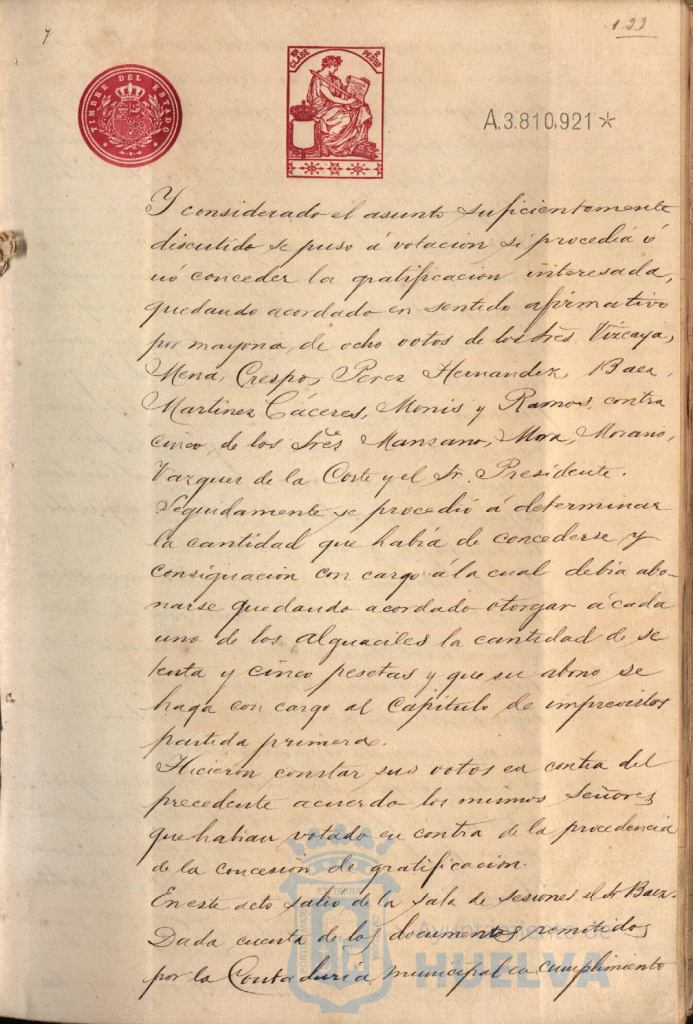 122
TIMBRE DEL ESTADO
10ª CLASE 2 PESETAS
A.3.810.921*
Y considerado el asunto suficientemente
discutido se puso á votacion si procediá ó
nó conceder la gratificacion interesada,
quedando acordado en sentido afirmativo
por mayoria, de ocho votos de los Sres. Vizcaya,
Mena, Crespo, Perez Hernandez, Baez,
Martinez Cáceres, Monis y Ramos, contra
cinco de los Sres Manzano, Mora, Morano,
Vazquez de la Corte y el Sr. Presidente.
Seguidamente se procedió á determinar
la cantidad que habia de concederse y
consignacion con cargo á la cual debia abo-
narse quedando acordado otorgar á cada
uno de los alguaciles la cantidad de se
tenta y cinco pesetas y que su abono se
haga con cargo al Capitulo de imprevistos
partida primera.
Hicieron constar sus votos en contra del
precedente acuerdo los mismos señores
que habian votado en contra de la procedencia
de la concesión de gratificacion.
En este acto salio de la sala de sesiones el Sr Baez.
Dada cuenta de los documentos remitidos
por la Contaduria municipal en cumplimiento
Ayuntamiento de
HUELVA